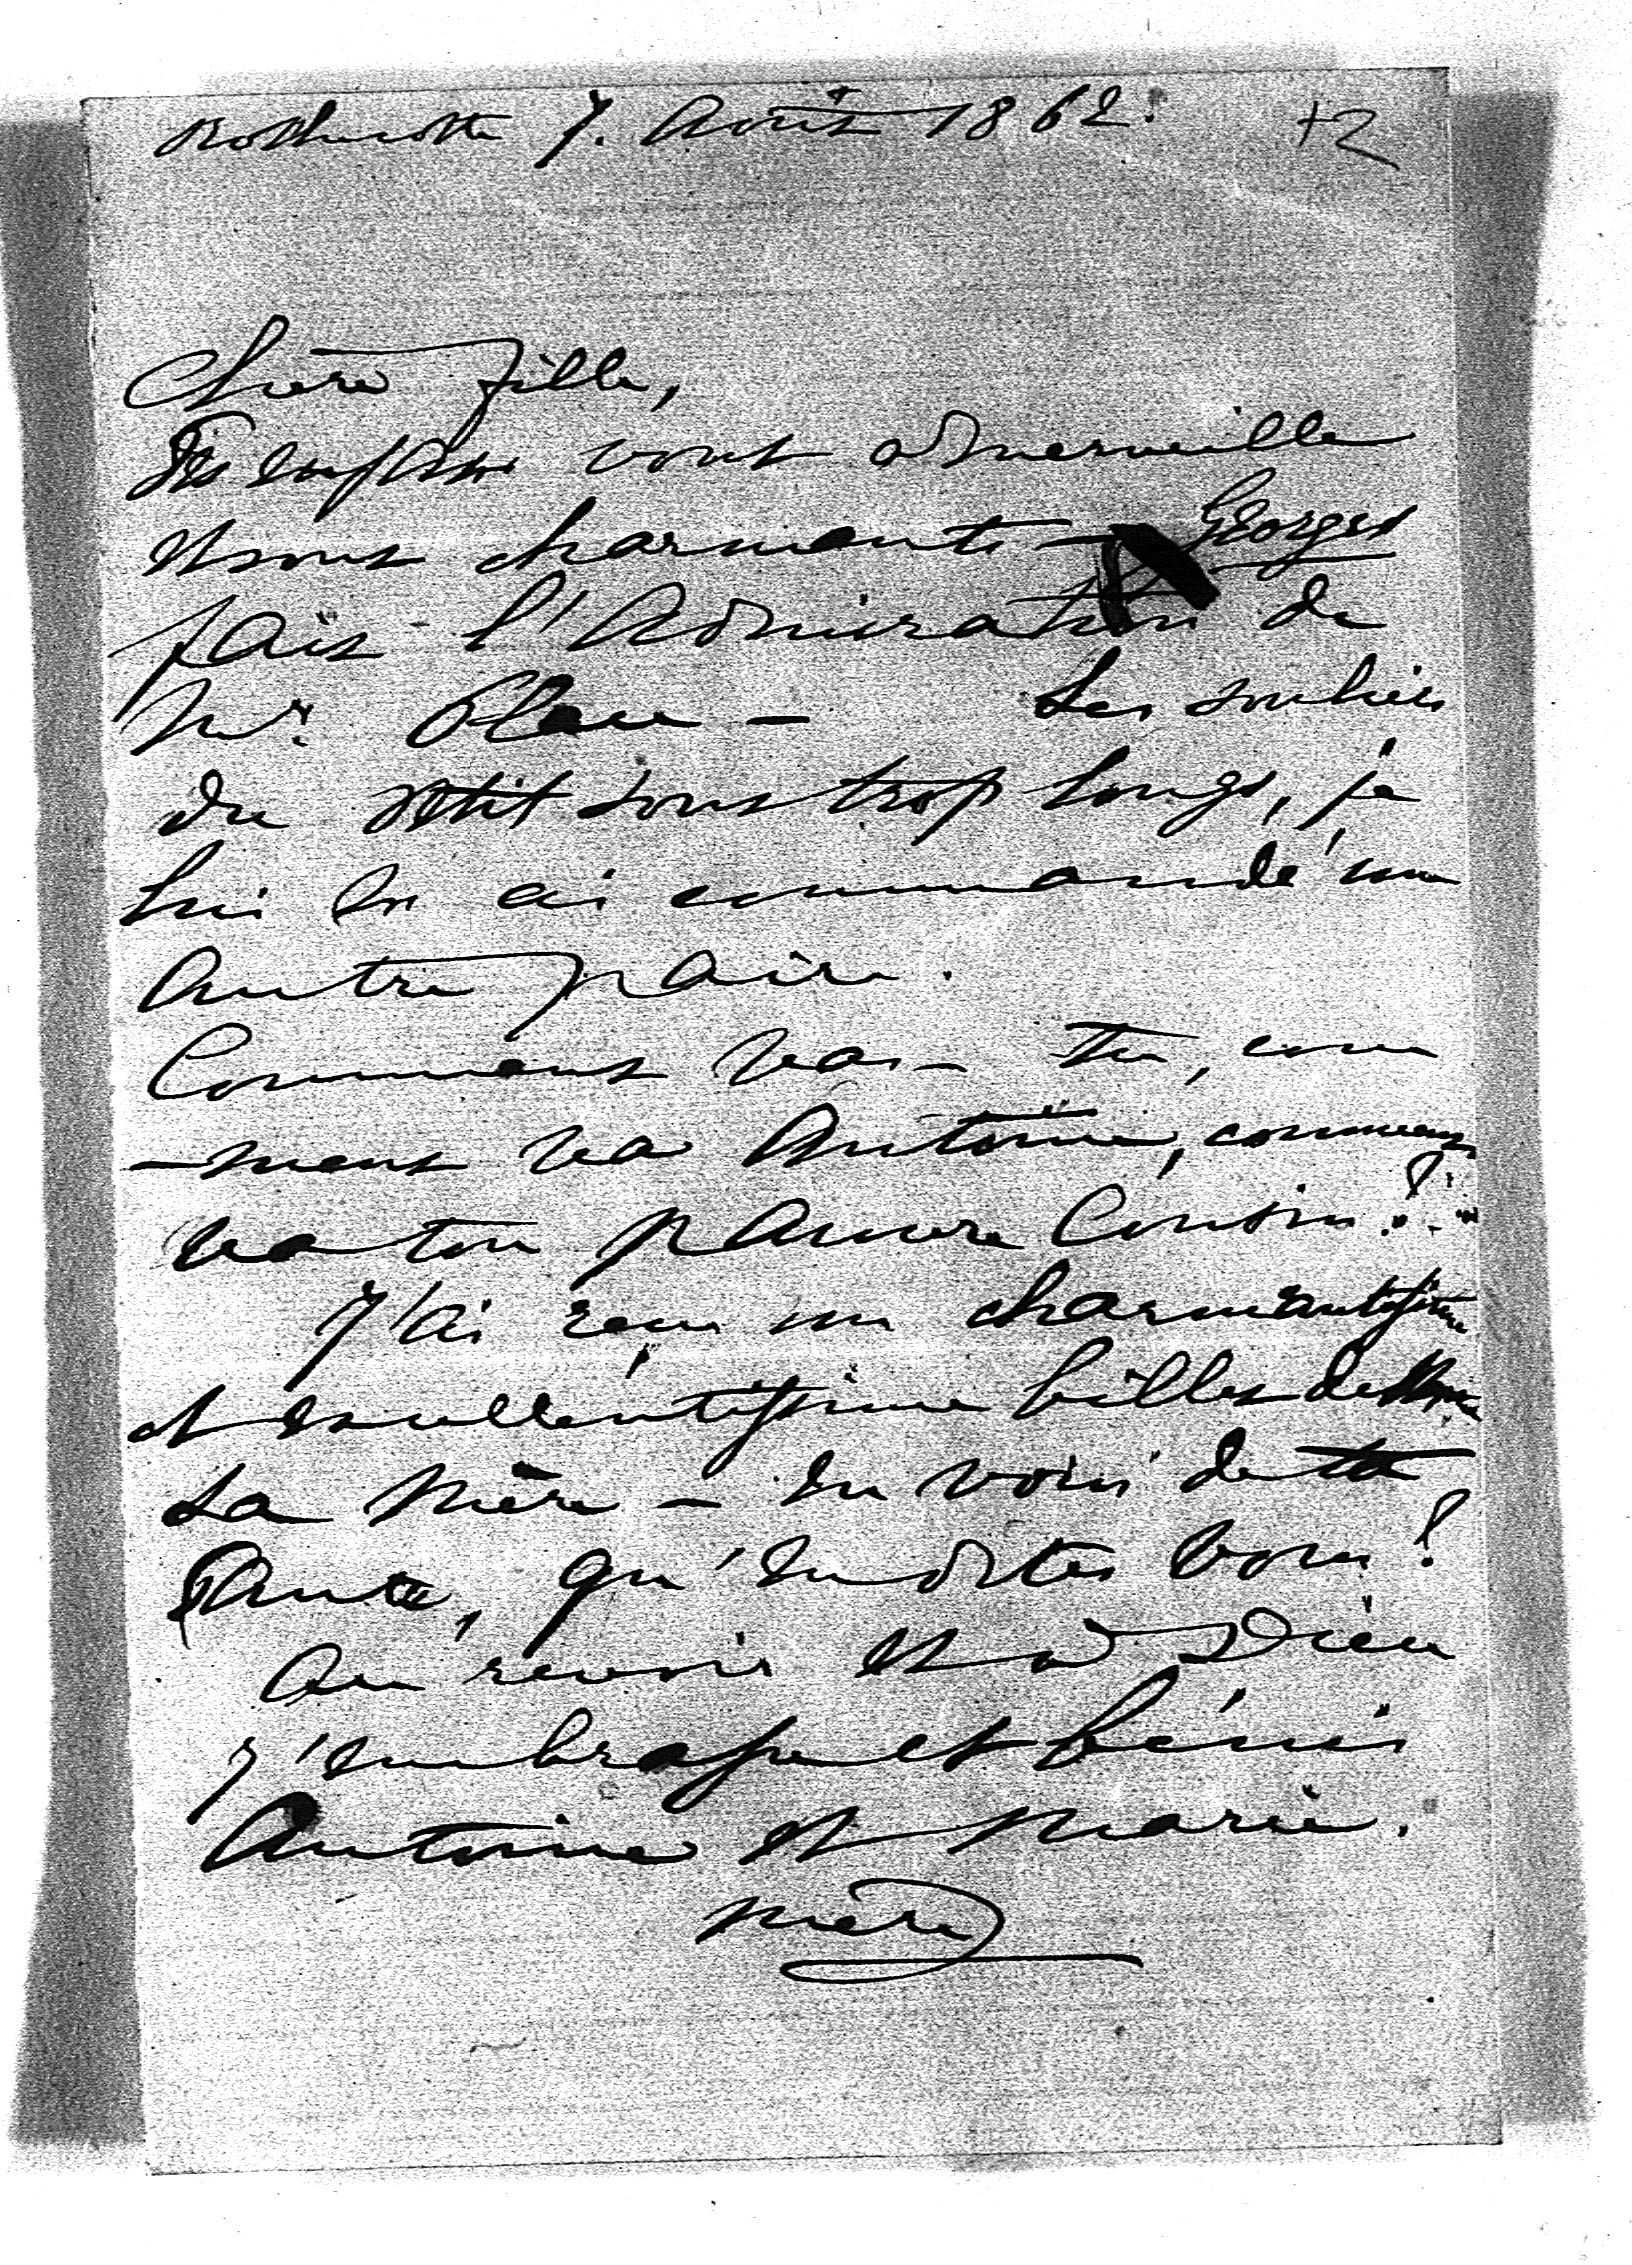 Rochecotte 7. Août 1862. +2
Chère fille,
Tes enfans vont à merveille
et sont charmants - Georges
fait l'admiration de
Mr. - Les souliers
du petit sont trop longs, je
lui en ai commandé une
autre paire.
Comment vas-tu, com
-ment va Antoine, comment
va ton pauvre Cousin?
J'ai reçu un charmantissime
et excellentissime billet de
la Mère - en voici de ta
tante, qu'en dites vous?
au revoir et à Dieu
j'embrasse et bénis
Antoine et Marie.
mère